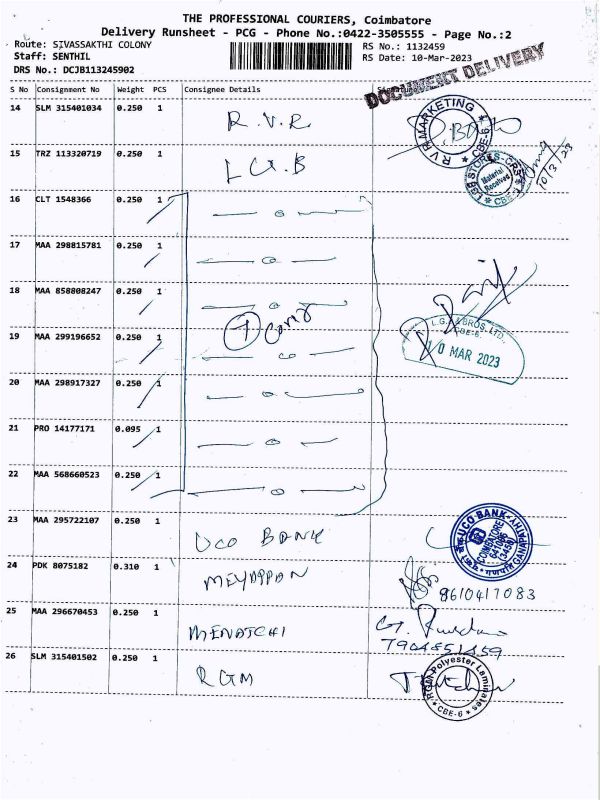 THE PROFESSIONAL COURIERS, Coimbatore
Delivery Runsheet - PCG - Phone No.:0422-3505555 - Page No.:2
Route: SIVASSAKTHI COLONY
RS No.: 1132459
Staff: SENTHIL
RS Date: 10-Mar-2023
DRS No.: DCJB113245902
DOCUMENT DELIVERY
S No Consignment No Weight PCS Consignee Details
14 SLM 315401034 0.250 1 R.V.R
R V R MARKETING
CBE-6
15 TRZ 113320719 0.250 1 L G.B
LGB STORES-CRS
Material Received
CBE-6
10/3/23
16 CLT 1548366 0.250 1
17 MAA 298815781 0.250 1
18 MAA 858808247 0.250 1
7
19 MAA 299196652 0.250 1
L.G. & BROS. LTD
CBE-6.
10 MAR 2023
20 MAA 298917327 0.250 1
21 PRO 14177171 0.095 1
22 MAA 568660523 0.250 1
23 MAA 295722107 0.250 1 UCO BANK
UCO BANK
COIMBATORE
641006
GANAPATHY
24 PDK 8075182 0.310 1 MEYAPPAN
8610417083
25 MAA 296670453 0.250 1 MENATCHI
7904851459
26 SLM 315401502 0.250 1 RGM
RGM Polyester Laminates
CBE-6